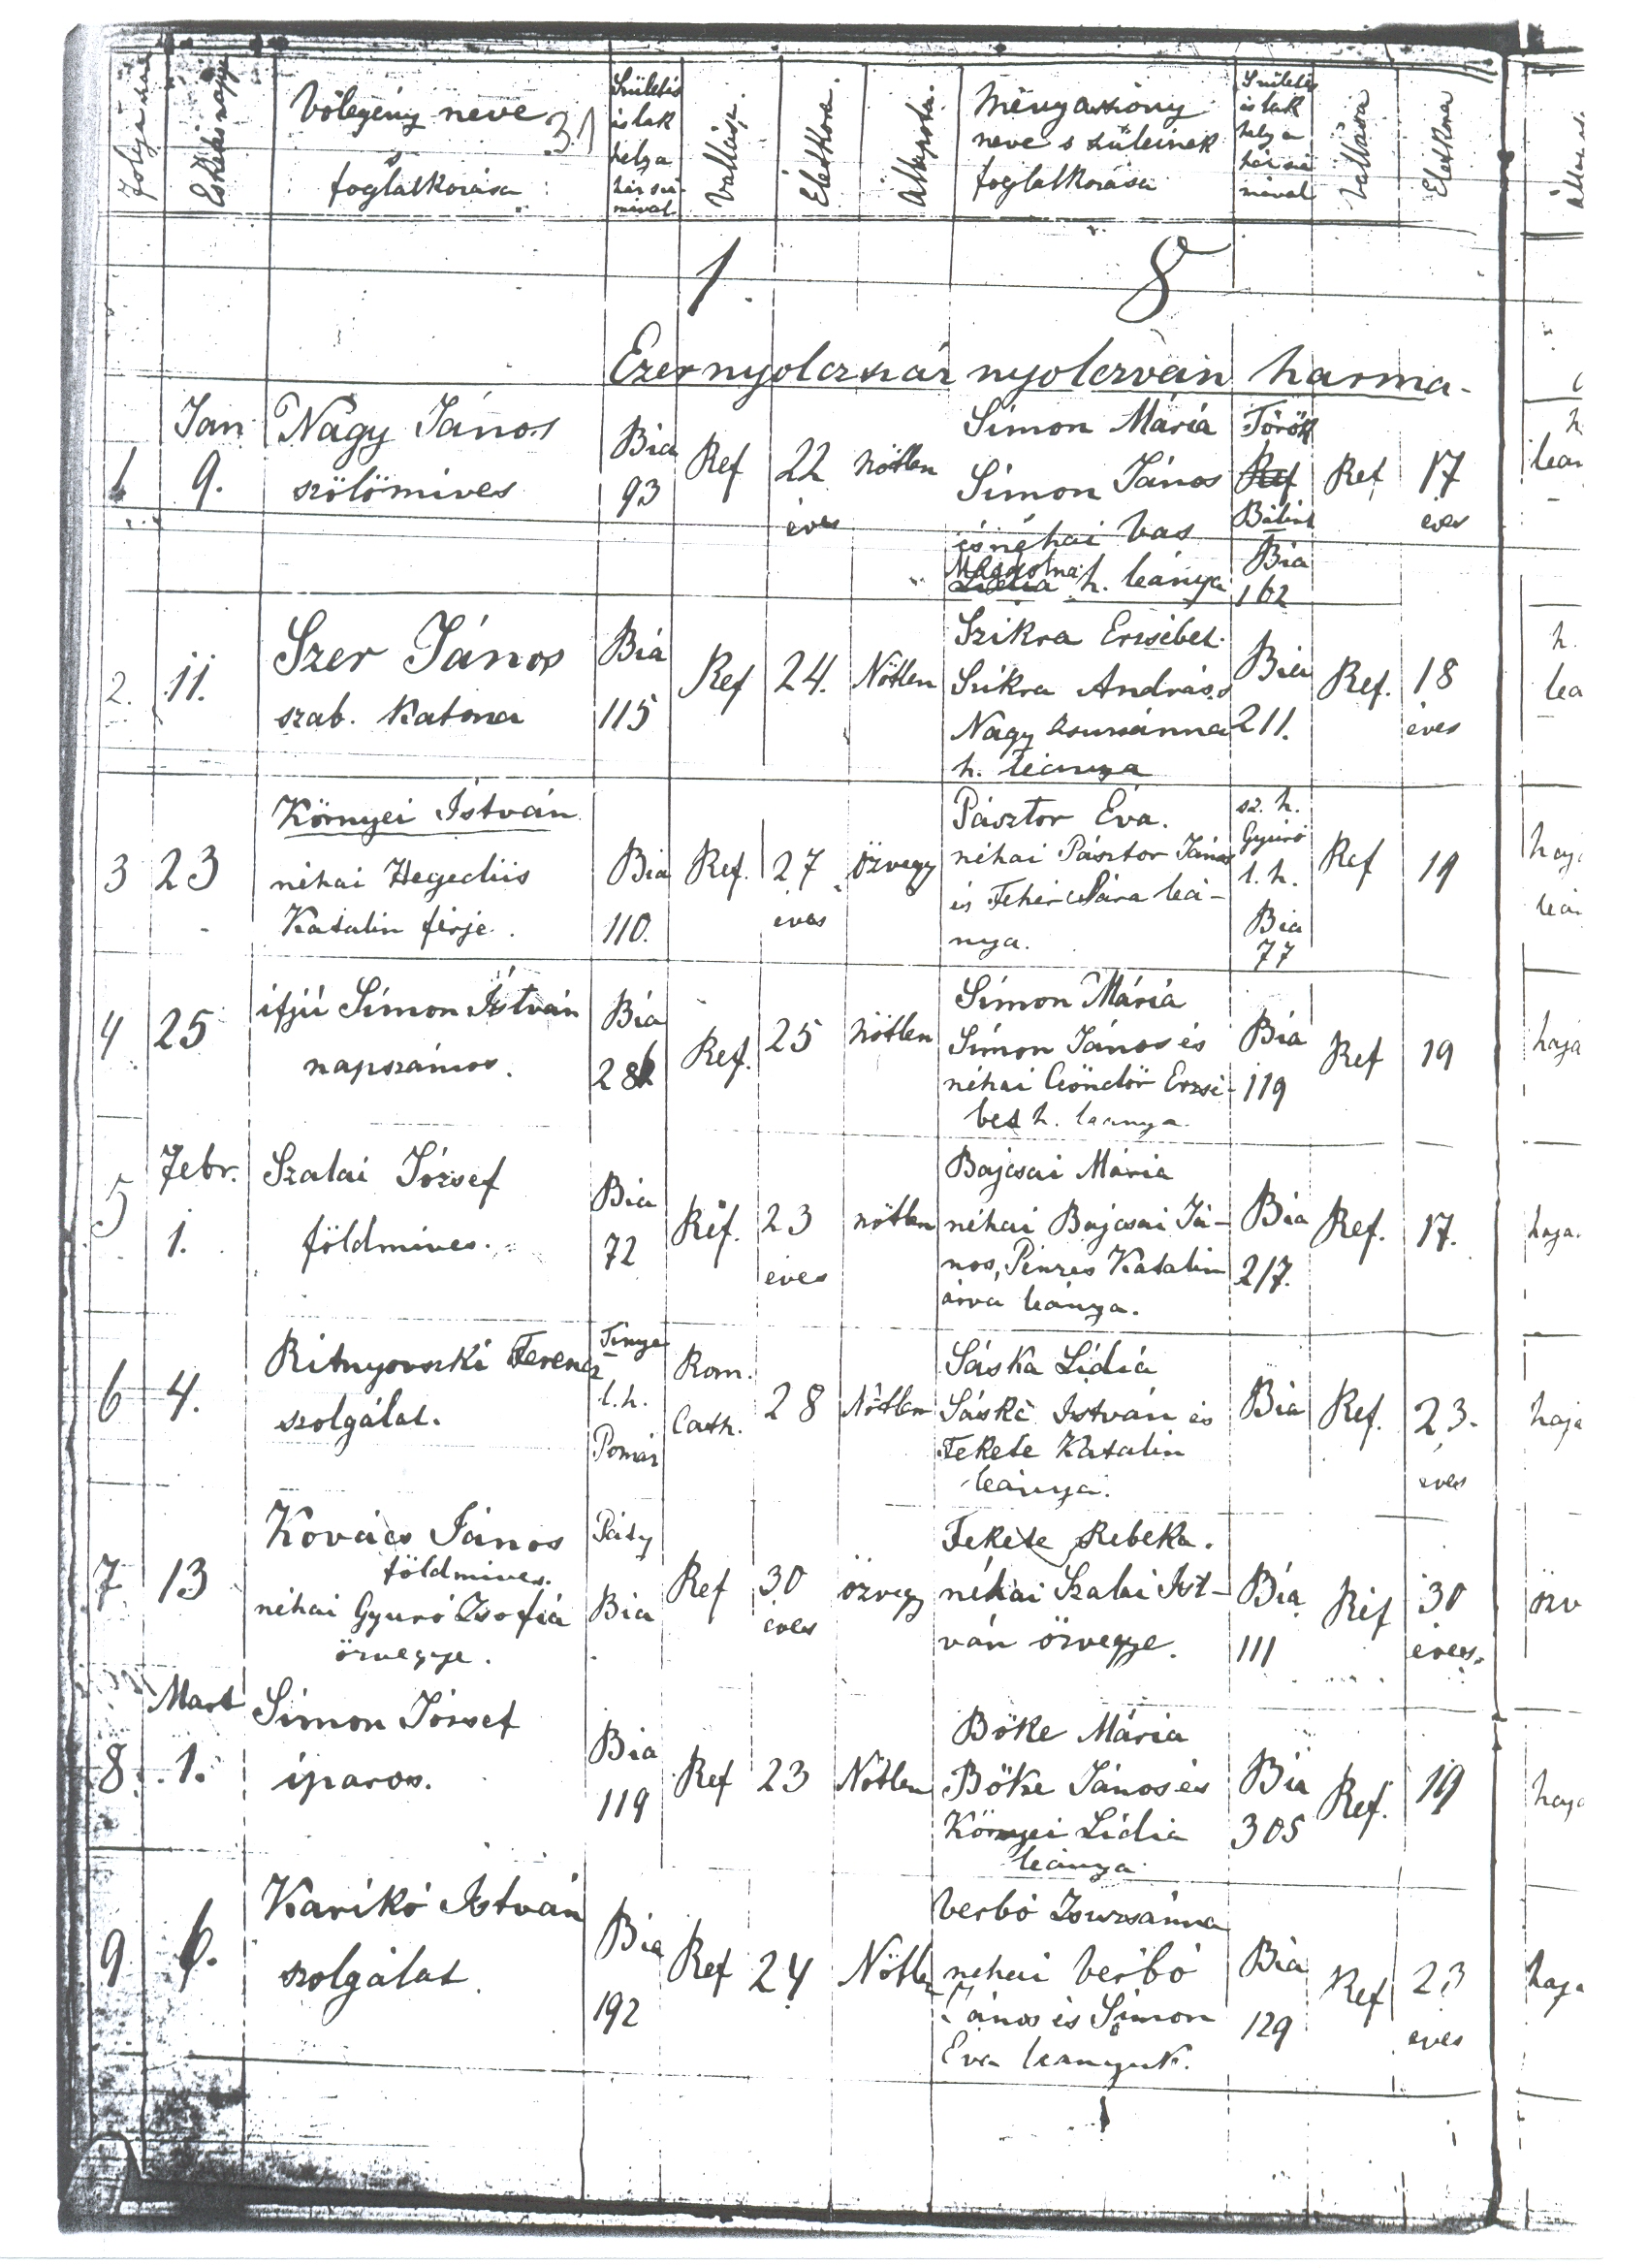 Esketés napja
Vőlegény neve
s
foglalkozása
Születés
és lak
helya
házszá-
mával
Vallása.
Életkora
Állapota.
Menyasszony
neve s szüleinek
foglalkozása
Születés
és lak
helya
házszá
mával
Vallása
Életkora
1. 8
Ezernyolczszáz nyolczván harma-
1 Jan 9.
Nagy János
szőlőmives
Bia
93
Ref
22
éves
nőtlen
Simon Mária
Simon János
és néhai Vas
Magdolna h. leánya
Török
Ref
Bálint
Bia
162
Ref
17
éves
2. 11.
Szer János
szab. katona
Biá
115
Ref
24.
Nőtlen
Szikra Erzsébet
Szikra András s
Nagy Zsuzsánna
h. leánya
Bia
211.
Ref.
18
éves
h.
lea
3 23
Környei István
néhai Hegedüs
Katalin férje.
Bia
110.
Ref.
27
éves
özvegy
Pásztor Éva.
néhai Pásztor János
és Fehér Sára leá-
nya.
sz. h.
Gyúró
l. h.
Bia
77
Ref
19
4 25
ifjú Simon István
napszámos.
Bia
Ref.
25
nőtlen
Simon Mária
Simon János és
néhai Göndör Erzsé-
bet h. leanya
Bia
119
Ref
19
haja
5 Febr. 1.
Szalai József
földmives.
Bia
72
Ref.
23
éves
nőtlen
Bajcsai Mária
néhai Bajcsai Já-
nos, Pénzes Katalin
árva leánya.
Bia
217.
Ref.
17.
haja.
6 4.
Ritnyovszki Ferencz
szolgálat.
Tinye
l. h.
Pomáz
Rom.
Cath.
28
Nőtlen
Sáska Lídia
Sáska István és
Fekete Katalin
leánya.
Bia
Ref.
23.
éves
haja
7 13
Kovács János
földmives.
néhai Gyuró Zsofiá
özvegye.
Páty
Bia
Ref
30
éves
özvegy
Fekete Rebeka.
néhai Szalai Ist-
ván özvegye.
Bia
111
Ref
30
éves.
özv
8. Mart 1.
Simon József
iparos.
Bia
119
Ref
23
Nőtlen
Bőke Mária
Bőke János és
Környei Lidia
leánya
Bia
305
Ref.
19
haja
9 6.
Karikó István
szolgálat.
Bia
192
Ref
24
Nőtlen
Verbó Zsuzsánna
néhai Verbó
János és Simon
Éva leanyuk.
Bia
129
Ref
23
éves
haja